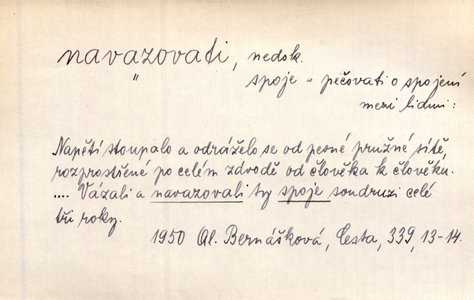 navazovati, nedok.
" spoje = pečovati o spojení
mezi lidmi:
Napětí stoupalo a odráželo se od pevné pružné sítě,
rozprostřené po celém závodě od člověka k člověku.
.... Vázali a navazovali ty spoje soudruzi celé
tři roky.
1950 Al. Bernášková, Cesta, 339, 13-14.